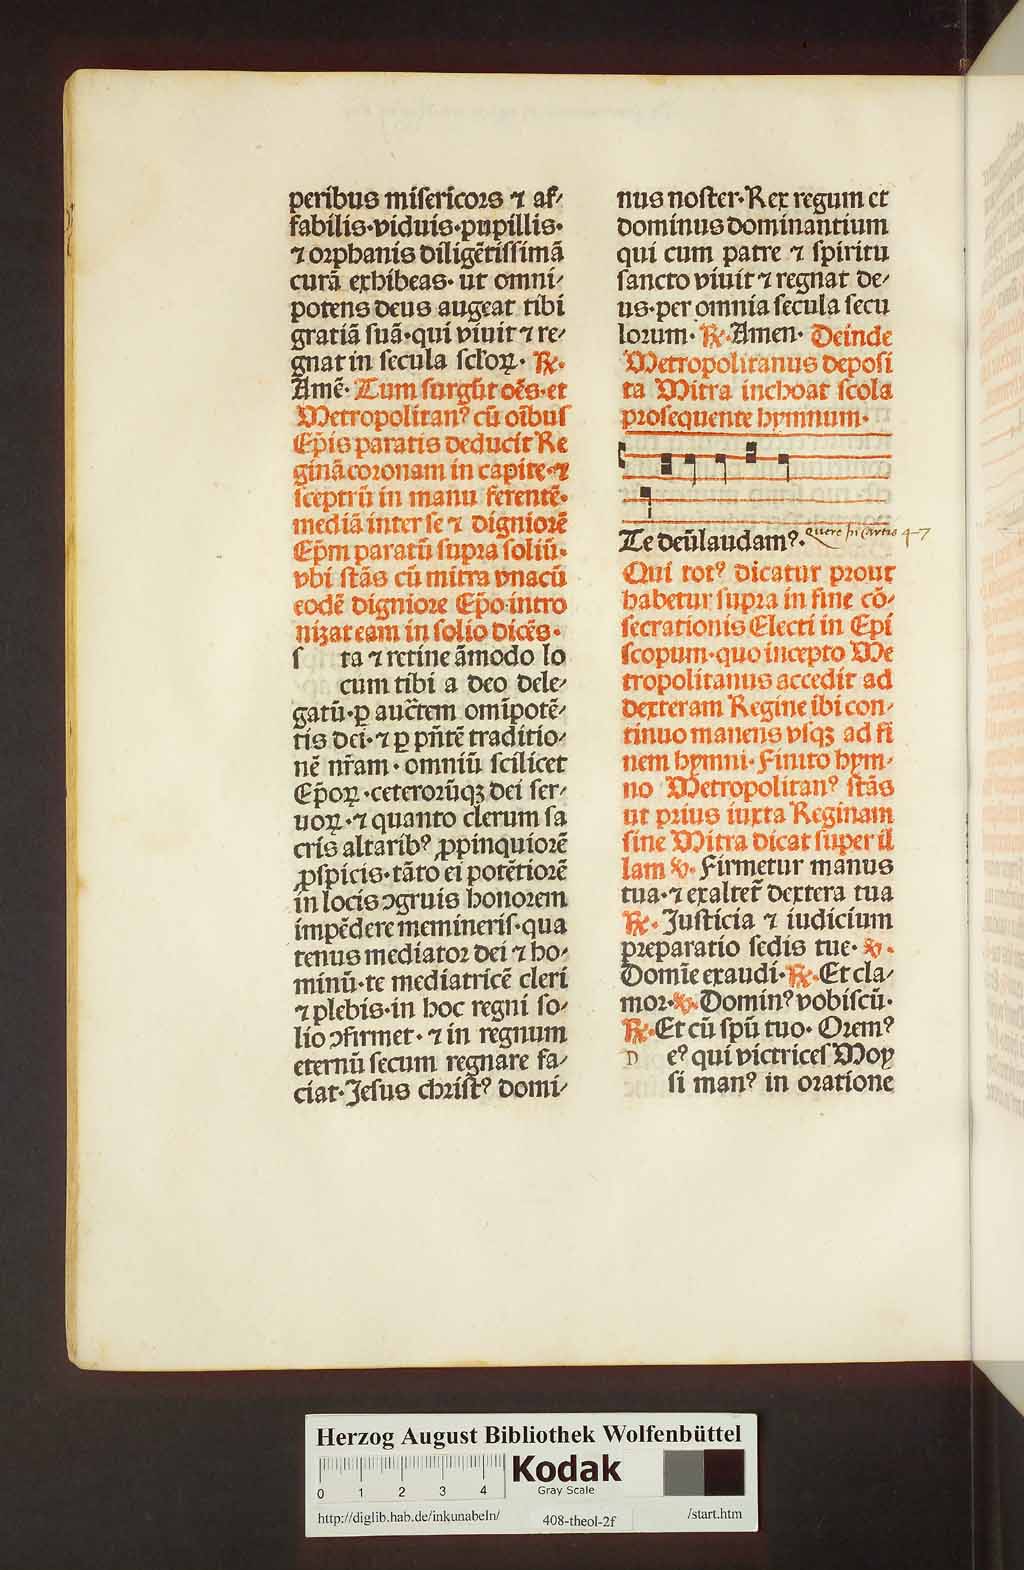 peribus misericors ⁊ af⸗
fabilis·viduis·pupillis·
⁊ orphanis diligētissimā
curā exhibeas· ut omni⸗
potens deus augeat tibi
gratiā suā·qui viuit ⁊ re⸗
gnat in secula scl'oꝝ· ℟·
Amē· Tum surgūt oēs·et
Metropolitanꝰ cū oībus
Ep̄is paratis deducit Re
ginā coronam in capite·⁊
sceptrū in manu ferentē·
mediā inter se ⁊ digniorē
Ep̄m paratū supra soliū·
vbi stās cū mitra vnacū
eodē digniore Ep̄o·intro
nizat eam in solio dicēs·
s ta ⁊ retine āmodo lo
cum tibi a deo dele⸗
gatū·ꝑ auct̄em omīpotē⸗
tis dei·⁊ ꝑ pn̄tē traditio⸗
nē nr̄am·omniū scilicet
Ep̄oꝝ·ceterorūqꝫ dei ser⸗
uoꝝ·⁊ quanto clerum sa
cris altaribꝰ ꝓpinquiorē
ꝓspicis·tāto ei potētiorē
in locis ꝯgruis honorem
impēdere memineris·qua
tenus mediator dei ⁊ ho⸗
minū·te mediatricē cleri
⁊ plebis·in hoc regni so⸗
lio ꝯfirmet·⁊ in regnum
eternū secum regnare fa⸗
ciat·Jesus christꝰ domi⸗
nus noster·Rex regum et
dominus dominantium
qui cum patre ⁊ spiritu
sancto viuit ⁊ regnat de⸗
us·per omnia secula secu
lorum· ℟·Amen· Deinde
Metropolitanus deposi
ta Mitra inchoat scola
prosequente hymnum·
Te deū laudamꝰ· Quere in Cartis 4-7
Qui totꝰ dicatur prout
habetur supra in fine cō⸗
secrationis Electi in Epi
scopum·quo incepto Me
tropolitanus accedit ad
dexteram Regine ibi con⸗
tinuo manens vsqꝫ ad fi
nem hymni·Finito hym⸗
no Metropolitanꝰ stās
ut prius iuxta Reginam
sine Mitra dicat super il
lam ℣· Firmetur manus
tua·⁊ exaltet̄ dextera tua
℟· Justicia ⁊ iudicium
preparatio sedis tue· ℣·
Domīe exaudi·℟·Et cla⸗
mor·℣·Dominꝰ vobiscū·
℟·Et cū spū tuo· Oremꝰ
D eꝰ qui victrices Moy
si manꝰ in oratione
Herzog August Bibliothek Wolfenbüttel
0 1 2 3 4
Kodak
Gray Scale
http://diglib.hab.de/inkunabeln/ 408-theol-2f /start.htm